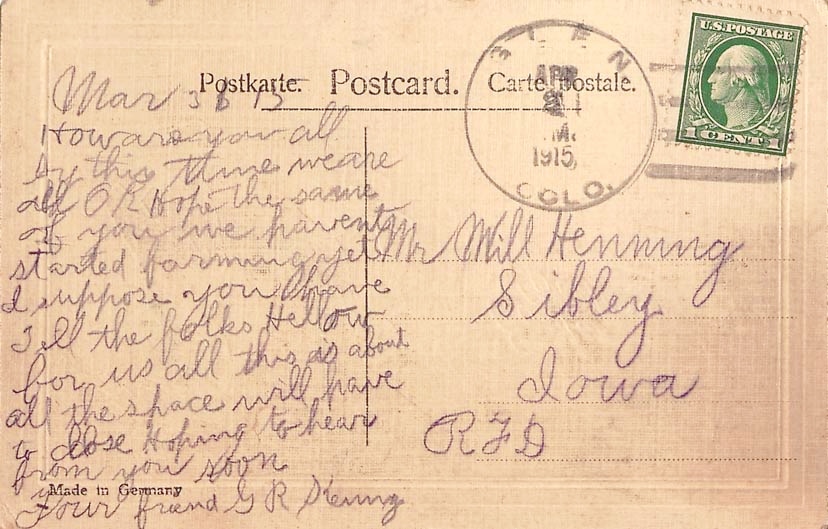 Postkarte. Postcard. Carte postale.
U.S. POSTAGE
1 CENT 1
GLEN
APR
M.
1915
COLO.
Mar 15
How are you all
by this time we are
all OK Hope the same
of you we havent
started farming yet
I suppose you have
Tell the folks Hellow
for us all this is about
all the space will have
to close Hoping to hear
from you soon
Your friend G R
Made in Germany
Mr Will Henning
Sibley
Iowa
RFD